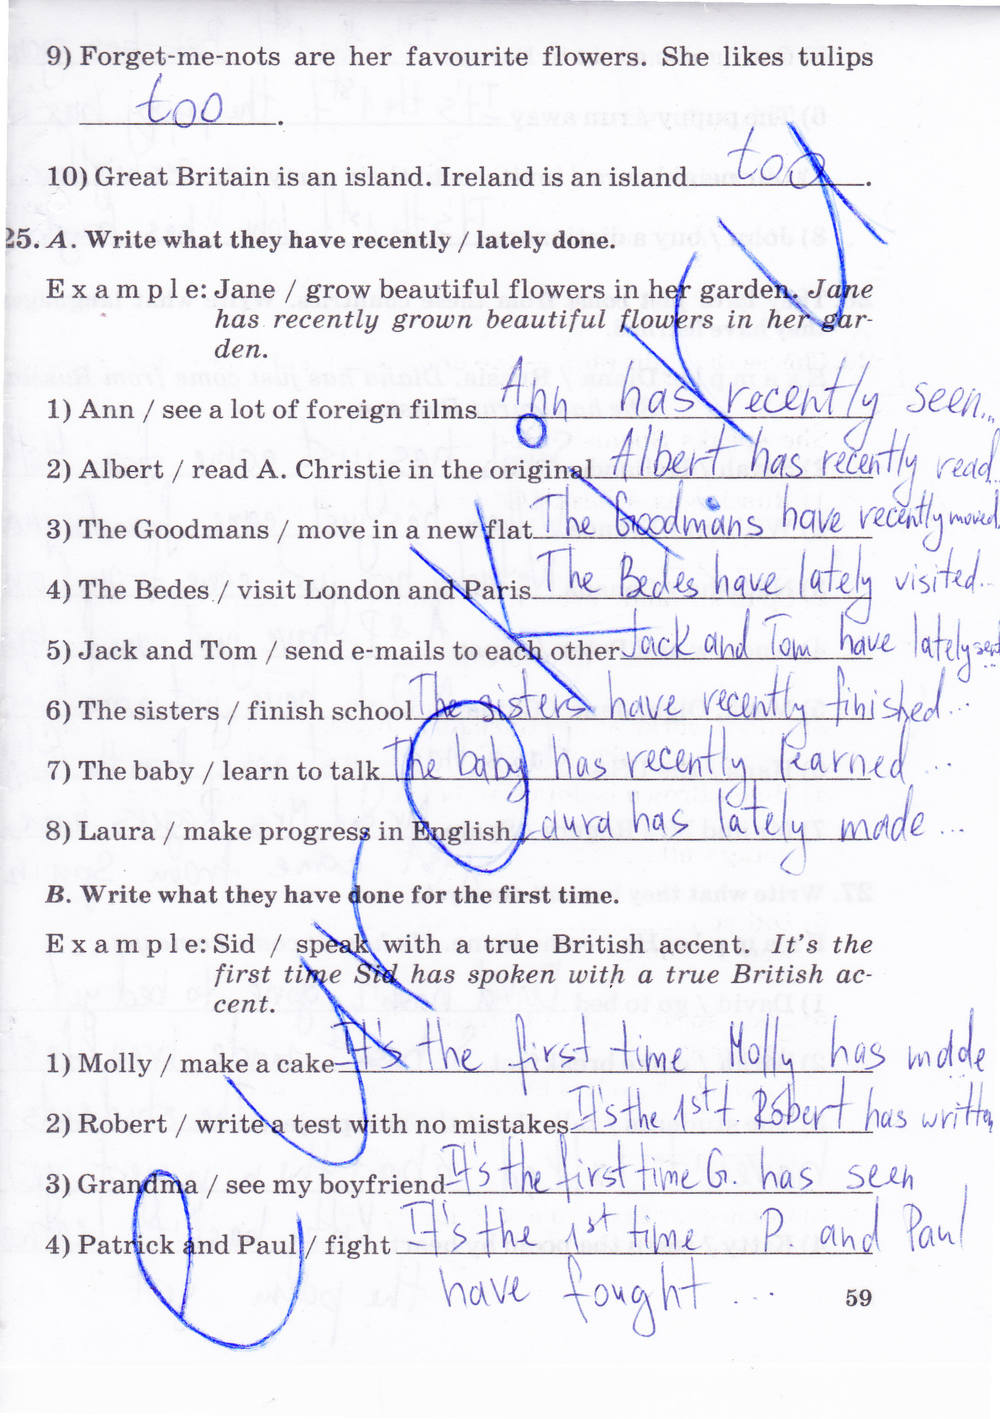 9) Forget-me-nots are her favourite flowers. She likes tulips
too.
10) Great Britain is an island. Ireland is an island. too.
25. A. Write what they have recently / lately done.
Example: Jane / grow beautiful flowers in her garden. Jane
has recently grown beautiful flowers in her gar-
den.
1) Ann / see a lot of foreign films Ann has recently seen...
2) Albert / read A. Christie in the original Albert has recently read...
3) The Goodmans / move in a new flat The Goodmans have recently moved
4) The Bedes / visit London and Paris The Bedes have lately visited...
5) Jack and Tom / send e-mails to each other Jack and Tom have lately sent...
6) The sisters / finish school The sisters have recently finished...
7) The baby / learn to talk The baby has recently learned...
8) Laura / make progress in English Laura has lately made...
B. Write what they have done for the first time.
Example: Sid / speak with a true British accent. It's the
first time Sid has spoken with a true British ac-
cent.
1) Molly / make a cake It's the first time Molly has made
2) Robert / write a test with no mistakes It's the 1st t. Robert has written
3) Grandma / see my boyfriend It's the first time G. has seen
4) Patrick and Paul / fight It's the 1st time P. and Paul
have fought...
59